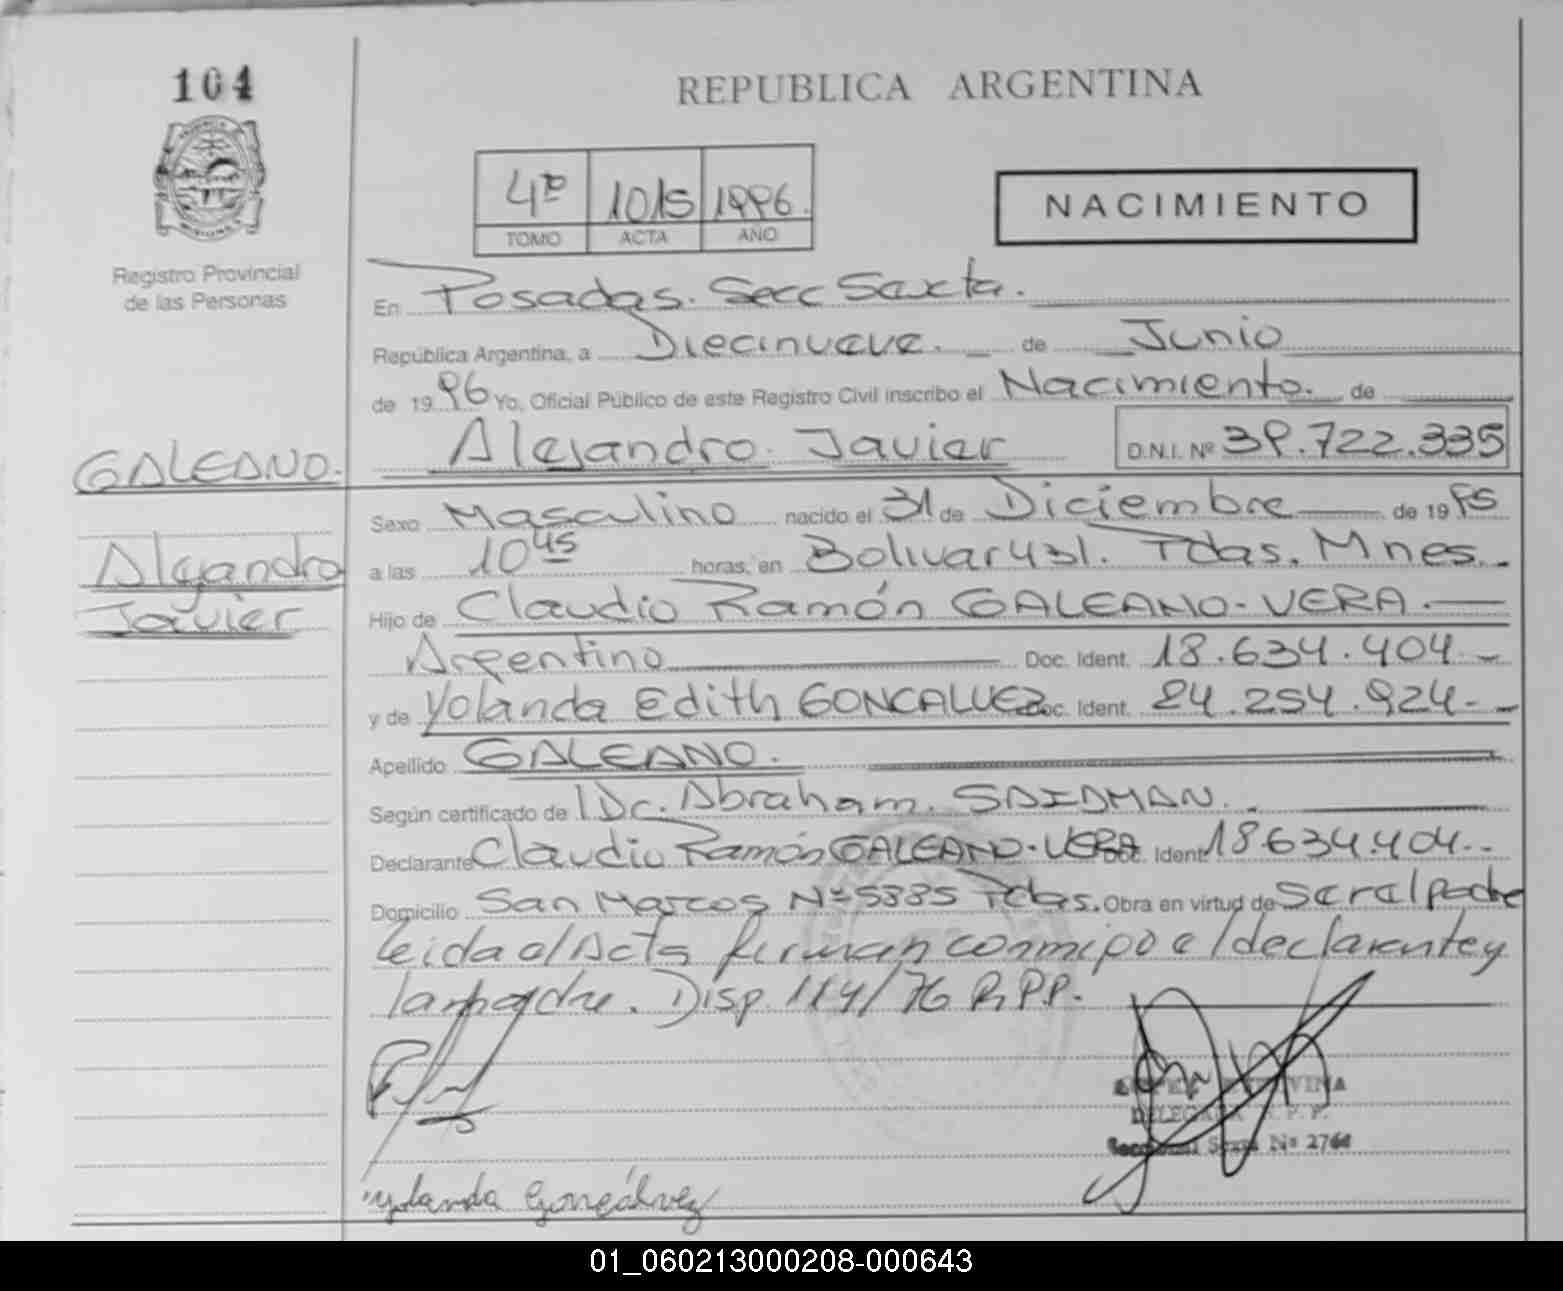 104
REPUBLICA ARGENTINA
4º 1015 1996.
TOMO ACTA AÑO
NACIMIENTO
Registro Provincial
de las Personas
En Posadas. Secc Sexta.
República Argentina, a Diecinueve. de Junio
de 1996 Yo, Oficial Público de este Registro Civil inscribo el Nacimiento. de
GALEANO.
Alejandro
Javier
Alejandro. Javier D.N.I. Nº 39.722.335
Sexo Masculino nacido el 31 de Diciembre de 1995
a las 10 45 horas, en Bolivar 431. Pdas. Mnes.
Hijo de Claudio Ramón GALEANO-VERA.
Argentino Doc. Ident. 18.634.404
y de Yolanda Edith GONCALVEZ Doc. Ident. 24.254.924
Apellido GALEANO.
Según certificado de Dr. Abraham. SAIDMAN.
Declarante Claudio Ramón GALEANO-VERA Doc. Ident. 18.634.404
Domicilio San Marcos Nº 5385 Pdas. Obra en virtud de Ser el padre
leida el Acta firman conmigo el declarante y
la madre. Disp. 114/76 R.P.P.
DELEGADA R.P.P.
Seccional Sexta Nº 2764
Yolanda Goncálvez
01_060213000208-000643